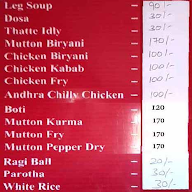 Leg Soup - 90/-
Dosa - 30/-
Thatte Idly - 30/-
Mutton Biryani - 170/-
Chicken Biryani - 100/-
Chicken Kabab - 100/-
Chicken Fry - 100/-
Andhra Chilly Chicken - 100/-
Boti - 120
Mutton Kurma - 170
Mutton Fry - 170
Mutton Pepper Dry - 170
Ragi Ball - 20/-
Parotha - 30/-
White Rice - 30/-